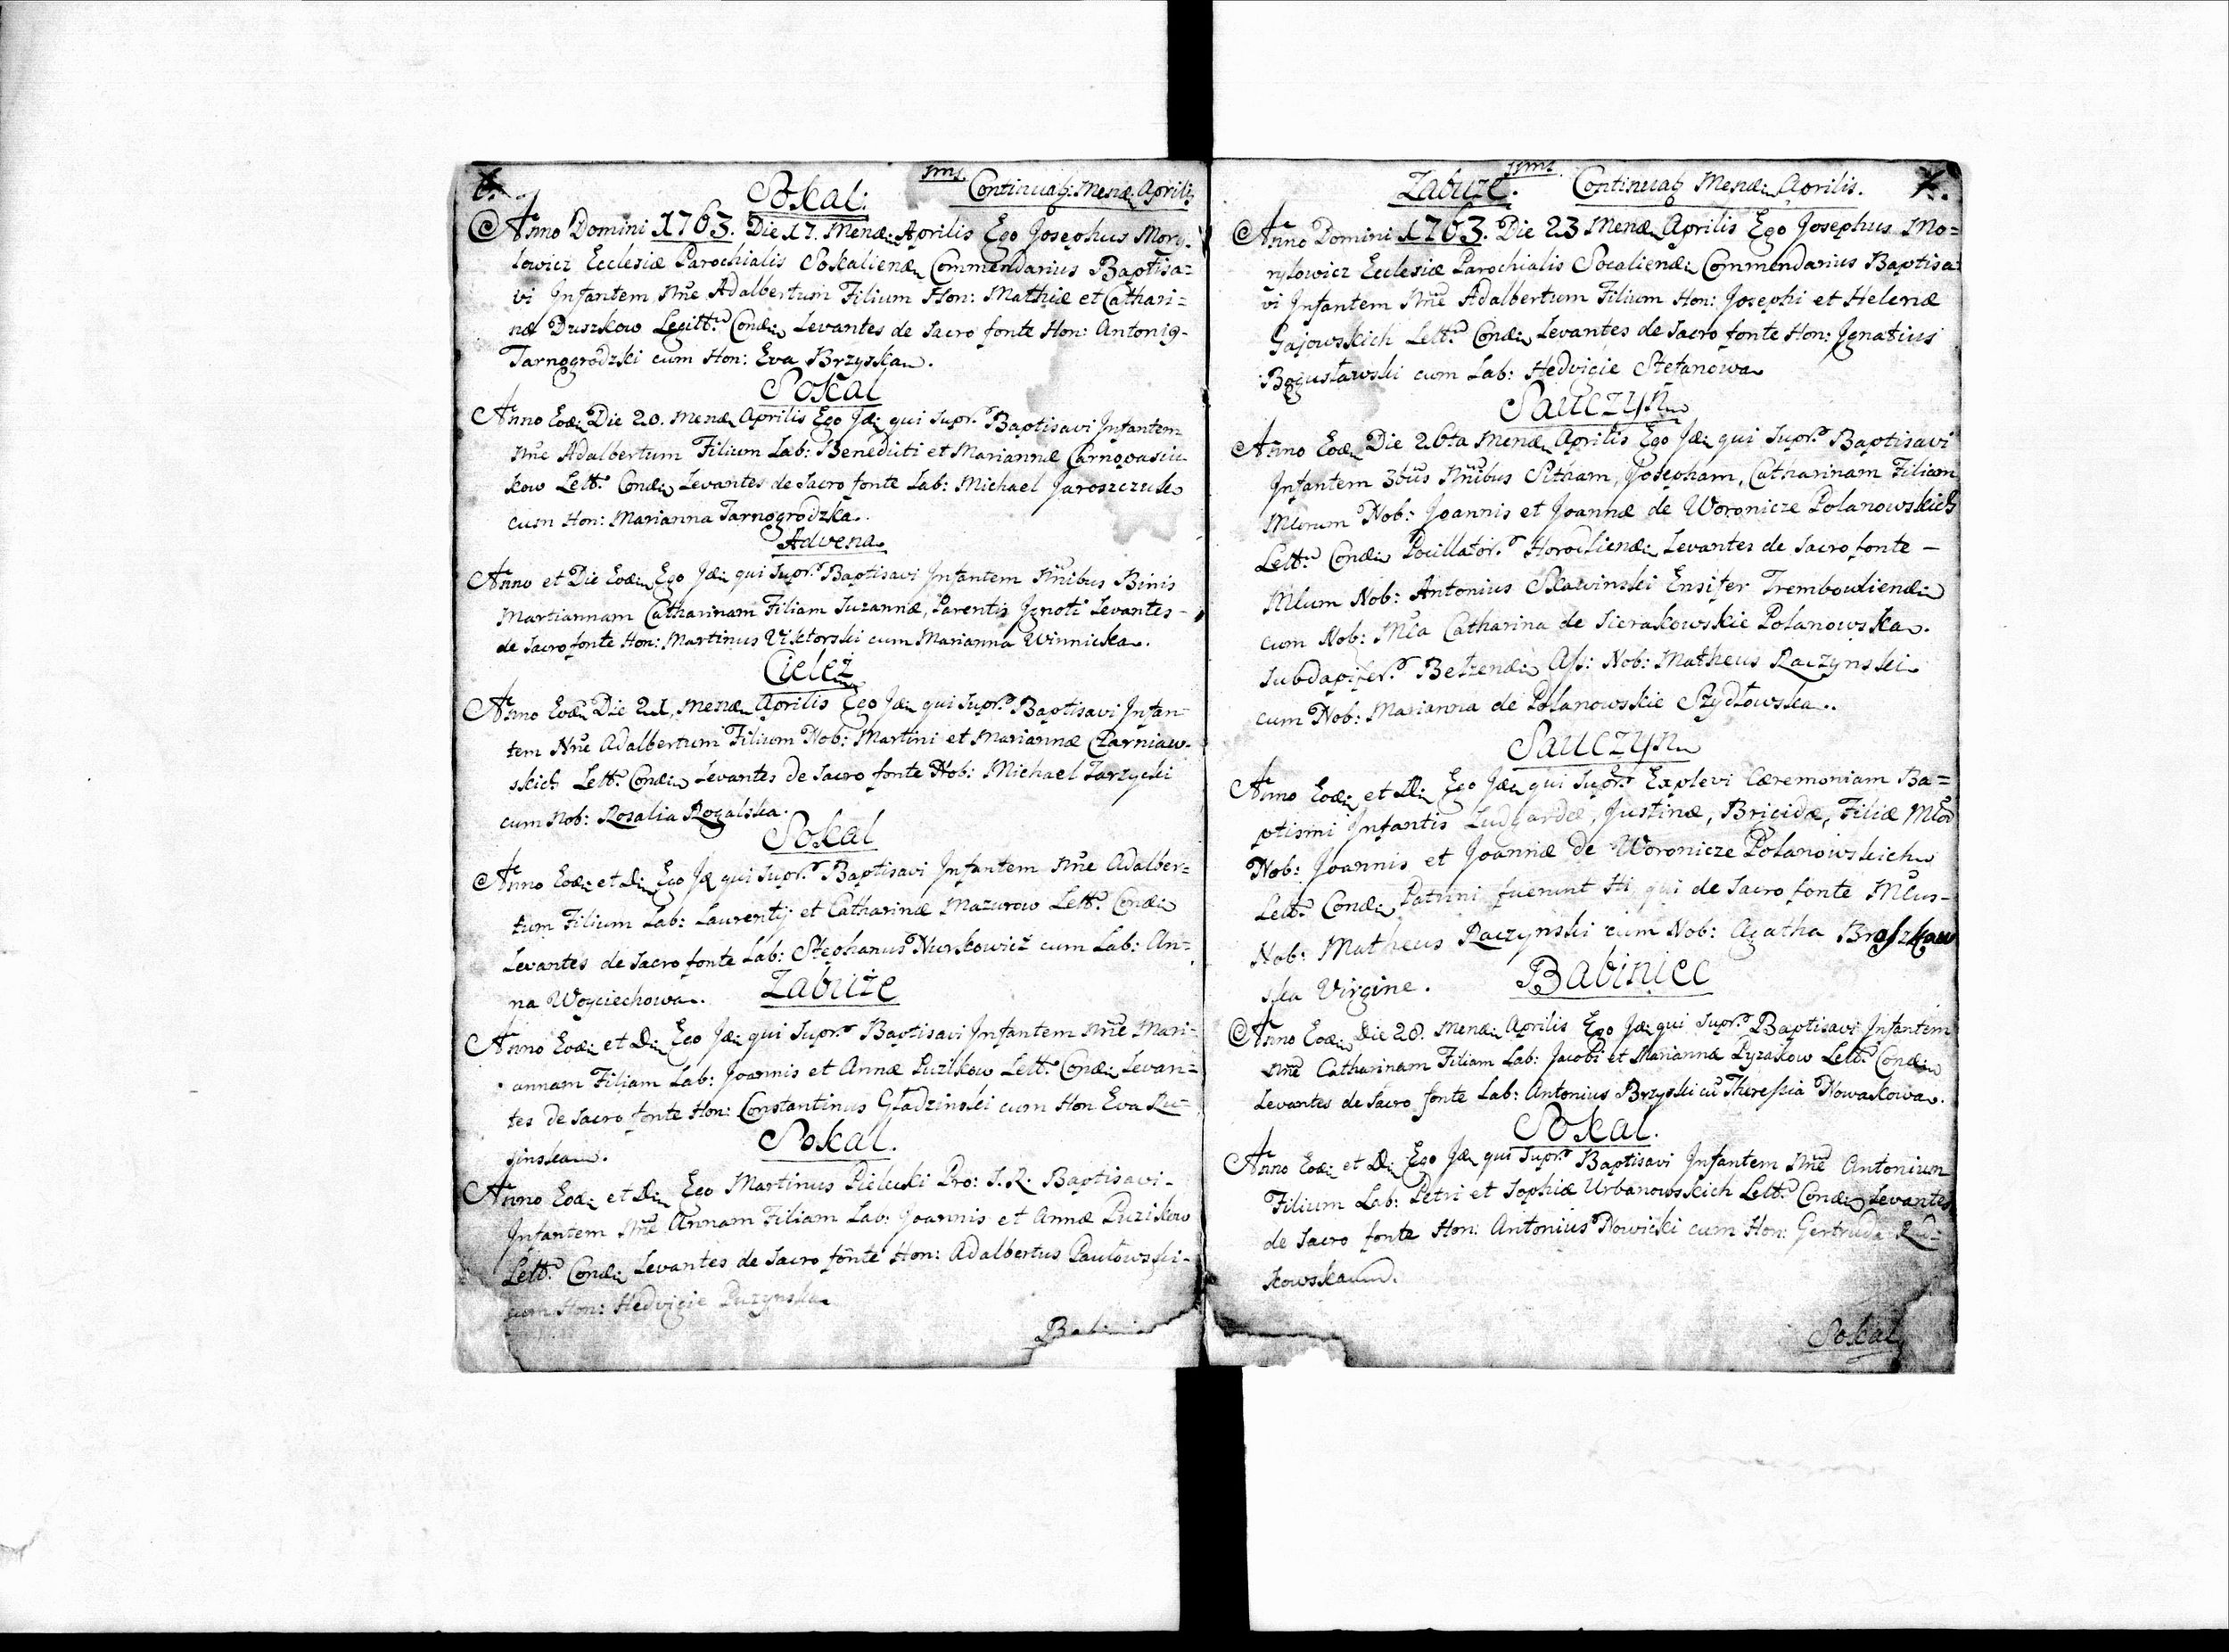 6.
Sokal.
Continuaƺ: Mensæ: Aprilis
Anno Domini 1763. Die 17. Mensæ: Aprilis Ego Josephus Mory-
lowicz Ecclesiæ Parochialis Sokaliensæ: Commendarius Baptisa=
vi Infantem Nne Adalbertum Filium Hon: Mathiæ et Cathari=
næ Duszkow Legitt: Condæ: Levantes de Sacro fonte Hon: Antonig-
Tarnogrodzki cum Hon: Eva Brzyska.
Sokal
Anno Eodæ: Die 20. Mensæ Aprilis Ego Jdæ: qui Supr: Baptisavi Infantem
Nne Adalbertum Filium Lab: Benedicti et Mariannæ
kow Lett: Condæ: Levantes de Sacro fonte Lab: Michael Jaroszczuk
cum Hon: Marianna Tarnogrodzka.
Advena
Anno et Die Eodæ: Ego Jdæ: qui Supr: Baptisavi Infantem Nnibus Binis
Martiannam Catharinam Filiam Suzannæ, Parentis Ignoti Levantes-
de Sacro fonte Hon: Martinus Wiktorski cum Marianna Winnicka.
Cieleż
Anno Eodæ: Die 21, Mensæ Aprilis Ego Jdæ: qui Supr: Baptisavi Infan-
tem Nne Adalbertum Filium Nob: Martini et Mariannæ Czarniaw-
skich Lett: Condæ: Levantes de Sacro fonte Nob: Michael Zarzycki
cum Nob: Rosalia Rogalska.
Sokal
Anno Eodæ: et Di: Ego Jdæ qui Supr: Baptisavi Infantem Nne Adalber=
tum Filium Lab: Laurentij et Catharinæ Mazurow Lett: Condæ:
Levantes de Sacro fonte Lab: Stephanus Nurkowicz cum Lab: An=
na Woyciechowa.
Zabuże
Anno Eodæ: et Di: Ego Jdæ: qui Supr: Baptisavi Infantem Nne Mari-
annam Filiam Lab: Joannis et Annæ Puzikow Lett: Condæ: Levan=
tes de Sacro fonte Hon: Constantinus Gładzinski cum Hon Eva Ru=
sinska.
Sokal.
Anno Eodæ: et Di: Ego Martinus Pielucki Pro: S. R. Baptisavi-
Infantem Nne Annam Filiam Lab: Joannis et Annæ Puzikow
Lett: Condæ: Levantes de Sacro fonte Hon: Adalbertus Pawłowski-
cum Hon: Hedvigie Puzynska
Zabuże.
Continuaƺ Mensæ: Aprilis.
Anno Domini 1763. Die 23 Mensæ Aprilis Ego Josephus Mo=
rylowicz Ecclesiæ Parochialis Socaliensæ: Commendarius Baptisa
vi Infantem Nne Adalbertum Filium Hon: Josephi et Helenæ
Gajowskich Lett: Condæ: Levantes de Sacro fonte Hon: Ignatius
Bogusławski cum Lab: Hedvigie Stefanowa
Sauczyn
Anno Eodæ: Die 26ta Mensæ Aprilis Ego Jdæ: qui Supr: Baptisavi
Infantem 3bus Nnibus Sitham, Josepham, Catharinam Filiam
Mlorum Nob: Joannis et Joannæ de Woronicze Polanowskich
Lett: Condæ: Pocillator: Horodliensæ: Levantes de Sacro fonte -
Mlum Nob: Antonius Skawinski Ensifer Trembowliensæ:
cum Nob: Mla Catharina de Sierakowskie Polanowska.
Subdapifer: Belzensæ: Ass: Nob: Matheus Raczynski
cum Nob: Marianna de Polanowskie Szydłowska.
Sauczyn
Anno Eodæ: et Di: Ego Jdæ: qui Supr: Explevi Cæremoniam Ba=
ptismi Infantis Ludgardæ, Justinæ, Brigidæ, Filiæ Mlor
Nob: Joannis et Joannæ de Woronicze Polanowskich
Lett: Condæ: Patrini fuerunt Hi, qui de Sacro fonte Mlus-
Nob: Matheus Raczynski cum Nob: Agatha
ska Virgine.
Babiniec
Anno Eodæ: Die 28. Mensæ: Aprilis Ego Jdæ: qui Supr: Baptisavi Infantem
Nne Catharinam Filiam Lab: Jacobi et Mariannæ Pyzaikow Lett: Condæ:
Levantes de Sacro fonte Lab: Antonius Brzyski cũ Theressia Nowakowa.
Sokal.
Anno Eodæ: et Di: Ego Jdæ qui Supr: Baptisavi Infantem Nne Antonium
Filium Lab: Petri et Sophiæ Urbanowskich Lett: Condæ: Levantes
de Sacro fonte Hon: Antonius Nowicki cum Hon: Gertruda
kowska.
Sokal